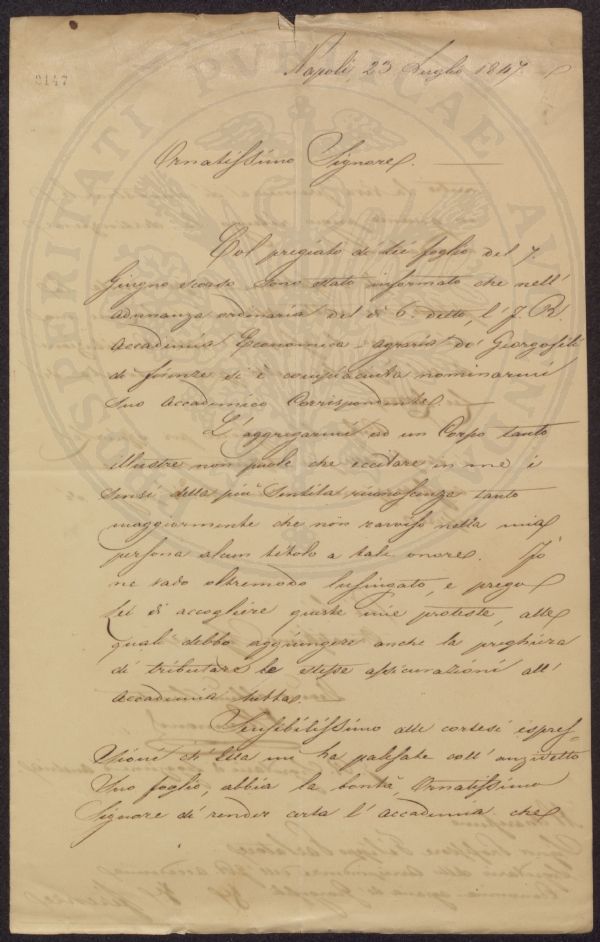 2147
Napoli, 23 Luglio 1847.
Ornatissimo Signore.
Col pregiato di Lei foglio del 7.
Giugno scorso sono stato informato che nell'
adunanza ordinaria del dì 6. detto, l'J. R
Accademia Economico-agraria de' Georgofili
di Firenze si è compiaciuta nominarmi
suo Accademico Corrispondente.
L'aggregarmi ad un Corpo tanto
illustre non puole che eccitare in me i
sensi della più sentita riconoscenza tanto
maggiormente che non ravviso nella mia
persona alcun titolo a tale onore. Jo
ne vado oltremodo lusingato, e prego
Lei di accogliere queste mie proteste, alle
quali debbo aggiungere anche la preghiera
di tributare le stesse assicurazioni all'
Accademia tutta.
Sensibilissimo alle cortesi espres-
sioni ch'Ella mi ha palesate coll'anzidetto
Suo foglio, abbia la bontà, Ornatissimo
Signore di render certa l'accademia che
PROSPERITATI PUBLICAE AUGENDAE